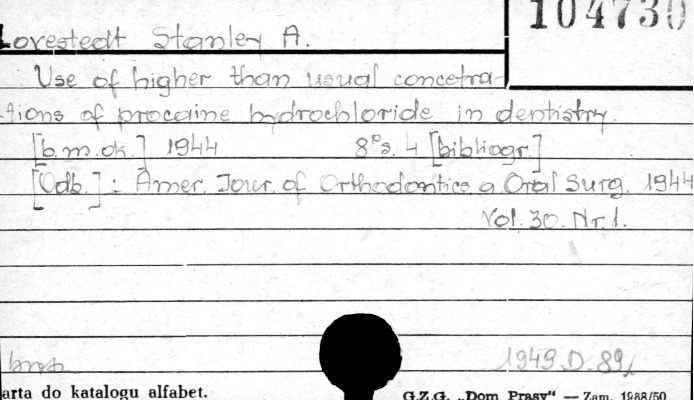 104730
Lovestedt Stanley A.
Use of higher than usual concetra-
tions of procaine hydrochloride in dentistry.
[b.m.dk.] 1944 8°s. 4 [bibliogr.]
[Odb.]: Amer. Jour. of Orthodontics a Oral Surg. 1944
Vol. 30. Nr. 1.
1949.D.89
arta do katalogu alfabet. G.Z.G. „Dom Prasy" — Zam. 1988/50